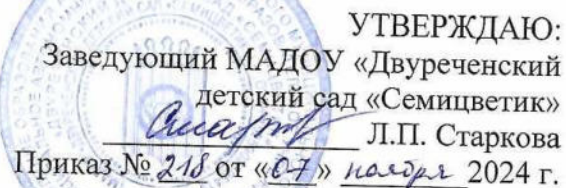 УТВЕРЖДАЮ:
Заведующий МАДОУ «Двуреченский
детский сад «Семицветик»
Л.П. Старкова
Приказ № 218 от «07» ноября 2024 г.